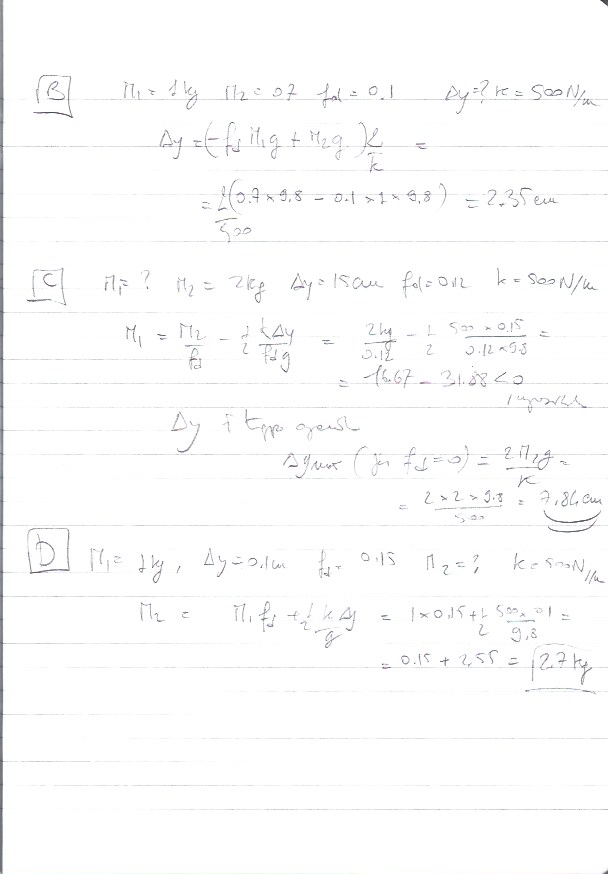 B M₁ = 1kg M₂ = 07 fd = 0.1 Δy = ? k = 500 N/m
Δy = (-fd M₁g + M₂g) 2/k =
= 2/500 (0.7 × 9,8 - 0.1 × 1 × 9,8) = 2.35 cm
C M₁ = ? M₂ = 2kg Δy = 15cm fd = 0.12 k = 500 N/m
M₁ = M₂/fd - 1/2 kΔy/fdg = 2kg/0.12 - 1/2 500 × 0.15/0.12 × 9.8 =
= 16.67 - 31.88 < 0
Δy
Δymax (για fd = 0) = 2M₂g/k =
= 2 × 2 × 9.8/500 = 7,84 cm
D M₁ = 1kg, Δy = 0.1m fd = 0.15 M₂ = ? k = 500 N/m
M₂ = M₁fd + 1/2 kΔy/g = 1 × 0.15 + 1/2 500 × 01/9,8 =
= 0.15 + 2,55 = 2.7 kg